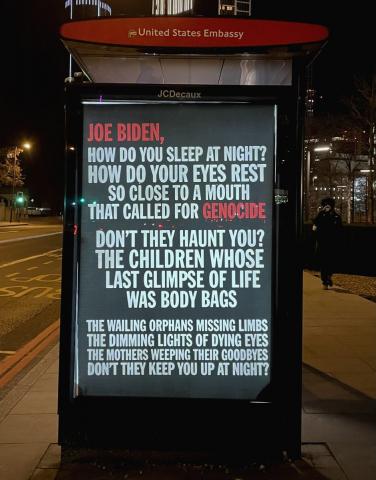 United States Embassy
JCDecaux
JOE BIDEN,
HOW DO YOU SLEEP AT NIGHT?
HOW DO YOUR EYES REST
SO CLOSE TO A MOUTH
THAT CALLED FOR GENOCIDE
DON'T THEY HAUNT YOU?
THE CHILDREN WHOSE
LAST GLIMPSE OF LIFE
WAS BODY BAGS
THE WAILING ORPHANS MISSING LIMBS
THE DIMMING LIGHTS OF DYING EYES
THE MOTHERS WEEPING THEIR GOODBYES
DON'T THEY KEEP YOU UP AT NIGHT?